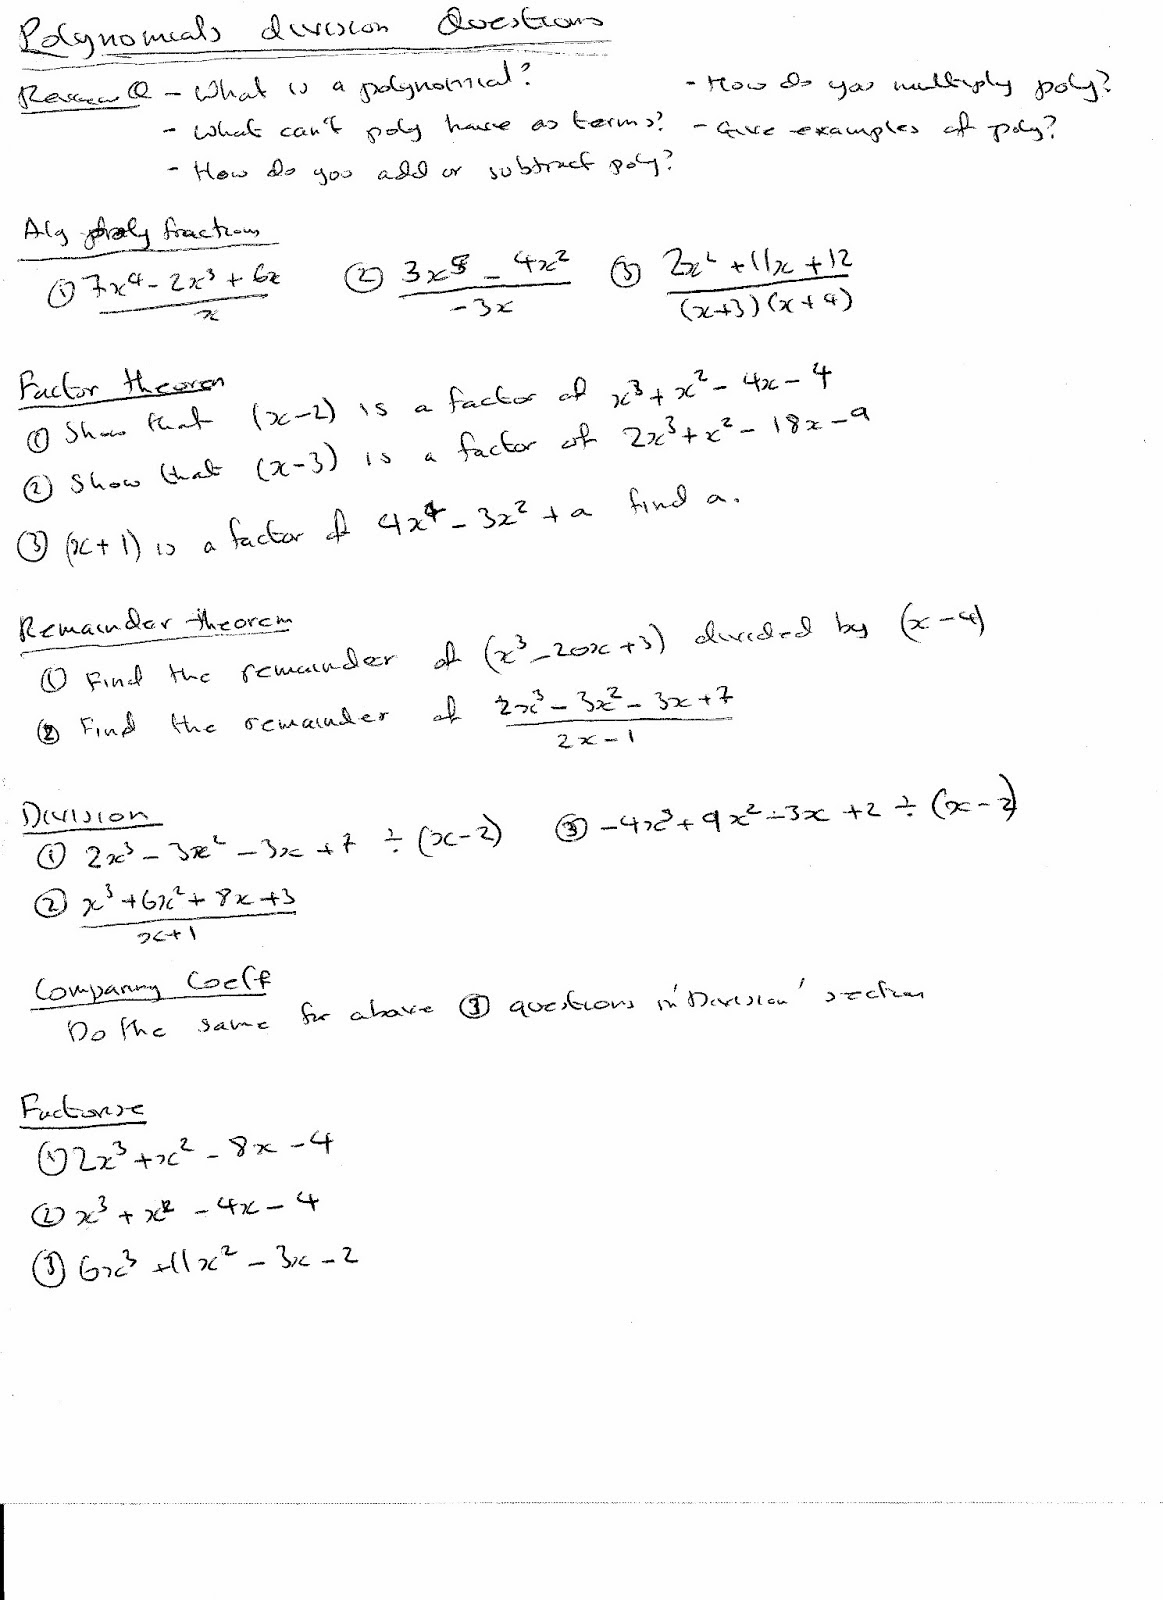 Polynomials division Questions
Review Q - What is a polynomial? - How do you multiply poly?
- What can't poly have as terms? - Give examples of poly?
- How do you add or subtract poly?
Alg poly fractions
① (7x⁴ - 2x³ + 6x)/x ② (3x⁵ - 4x²)/(-3x) ③ (2x² + 11x + 12)/((x+3)(x+4))
Factor theorem
① Show that (x-2) is a factor of x³ + x² - 4x - 4
② Show that (x-3) is a factor of 2x³ + x² - 18x - 9
③ (x+1) is a factor of 4x⁴ - 3x² + a find a.
Remainder theorem
① Find the remainder of (x³ - 20x + 3) divided by (x-4)
② Find the remainder of (2x³ - 3x² - 3x + 7)/(2x - 1)
Division
① 2x³ - 3x² - 3x + 7 ÷ (x-2) ③ -4x³ + 9x² - 3x + 2 ÷ (x-2)
② (x³ + 6x² + 8x + 3)/(x+1)
Comparing Coeff
Do the same for above ③ questions in 'Division' section
Factorise
① 2x³ + x² - 8x - 4
② x³ + x² - 4x - 4
③ 6x³ + 11x² - 3x - 2